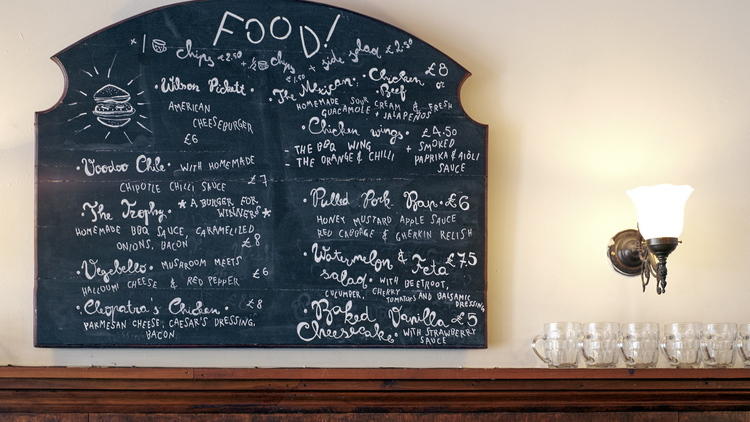 FOOD!
* 1 chips £2.50 + ½ chips £1.50 + side salad £2.50
• Wilson Pickett •
AMERICAN
CHEESEBURGER
£6
• Voodoo Chile • WITH HOMEMADE
CHIPOTLE CHILLI SAUCE £7
• The Trophy • *A BURGER FOR
WINNERS*
HOMEMADE BBQ SAUCE, CARAMELIZED
ONIONS, BACON £8
• Vegebello • MUSAROOM MEETS
HALLOUMI CHEESE & RED PEPPER £6
• Cleopatra's Chicken • £8
PARMESAN CHEESE, CAESAR'S DRESSING,
BACON
• The Mexican: • Chicken £8
or
Beef
HOMEMADE SOUR CREAM & FRESH
GUACAMOLE + JALAPEÑOS
• Chicken wings • £4.50
- THE BBQ WING + SMOKED
- THE ORANGE & CHILLI PAPRIKA & AIOLI
SAUCE
• Pulled Pork Bap • £6
HONEY MUSTARD APPLE SAUCE
RED CABBAGE & GHERKIN RELISH
• Watermelon & Feta £7.5
salad • WITH BEETROOT,
CUCUMBER, CHERRY
TOMATOES AND BALSAMIC
DRESSING
• Baked Vanilla £5
Cheesecake • WITH STRAWBERRY
SAUCE